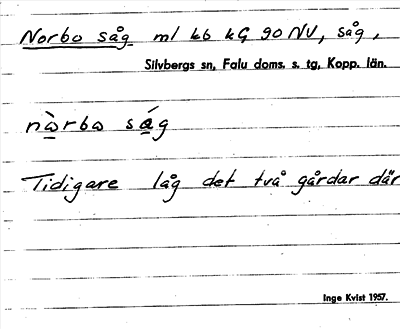 Norbo såg ml kb kG 90 NV, såg,
Silvbergs sn, Falu doms. s. tg, Kopp. län.
nàrbo ság
Tidigare låg det två gårdar där
Inge Kvist 1957.